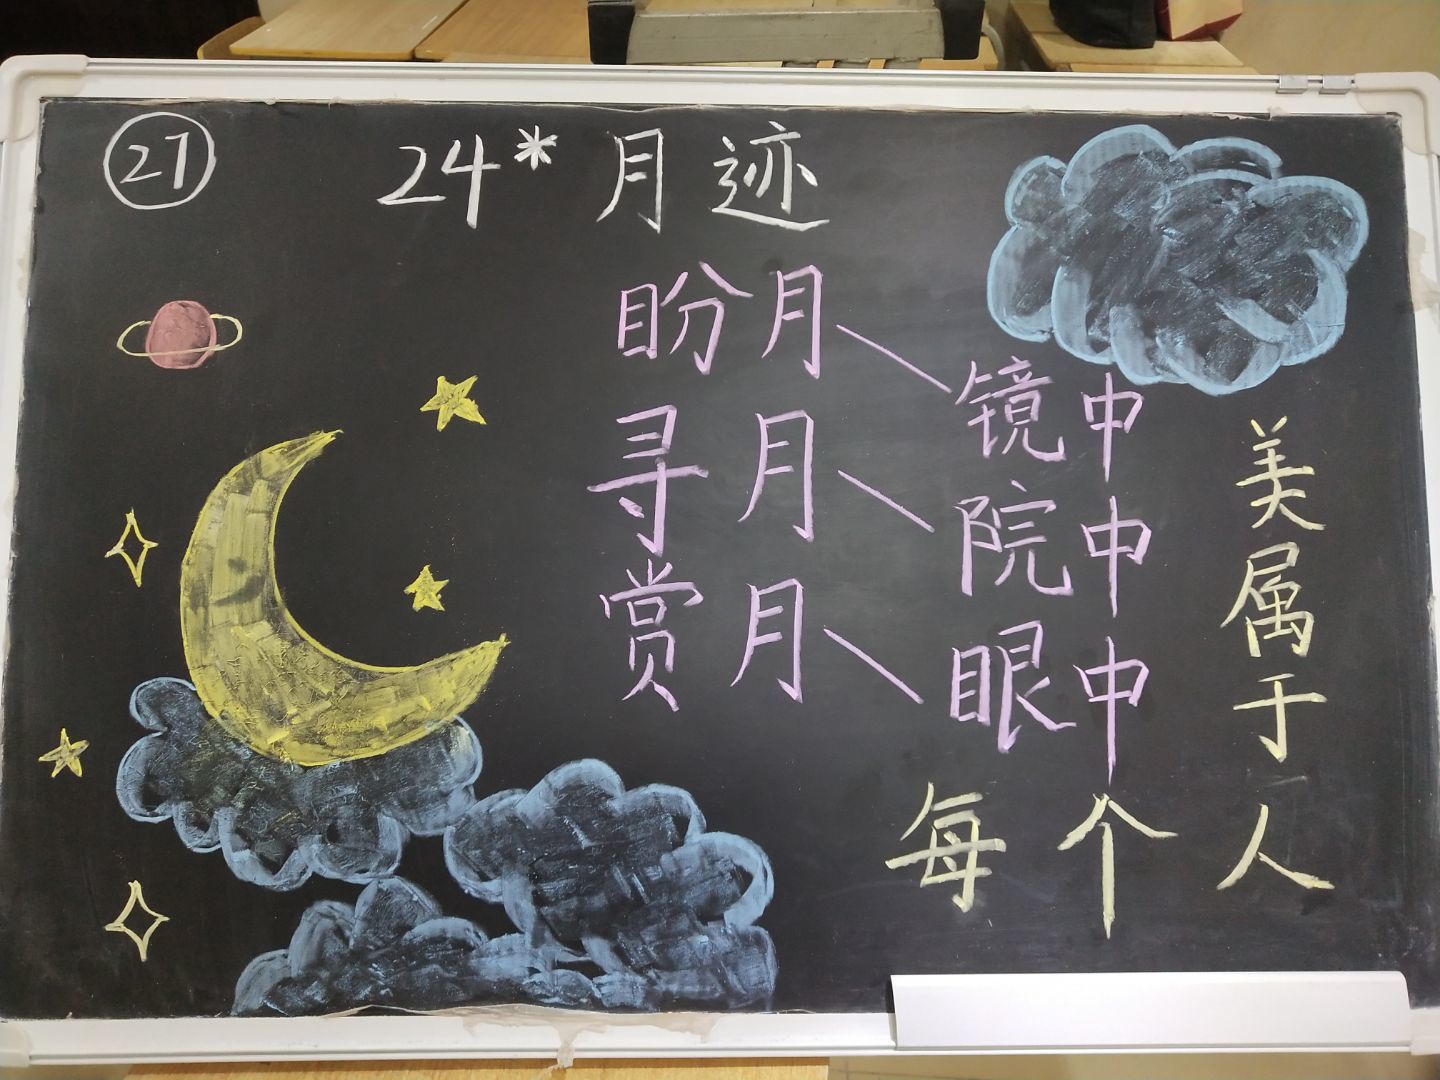 27
24* 月迹
盼月 镜中
寻月 院中
赏月 眼中
美属于
每个人